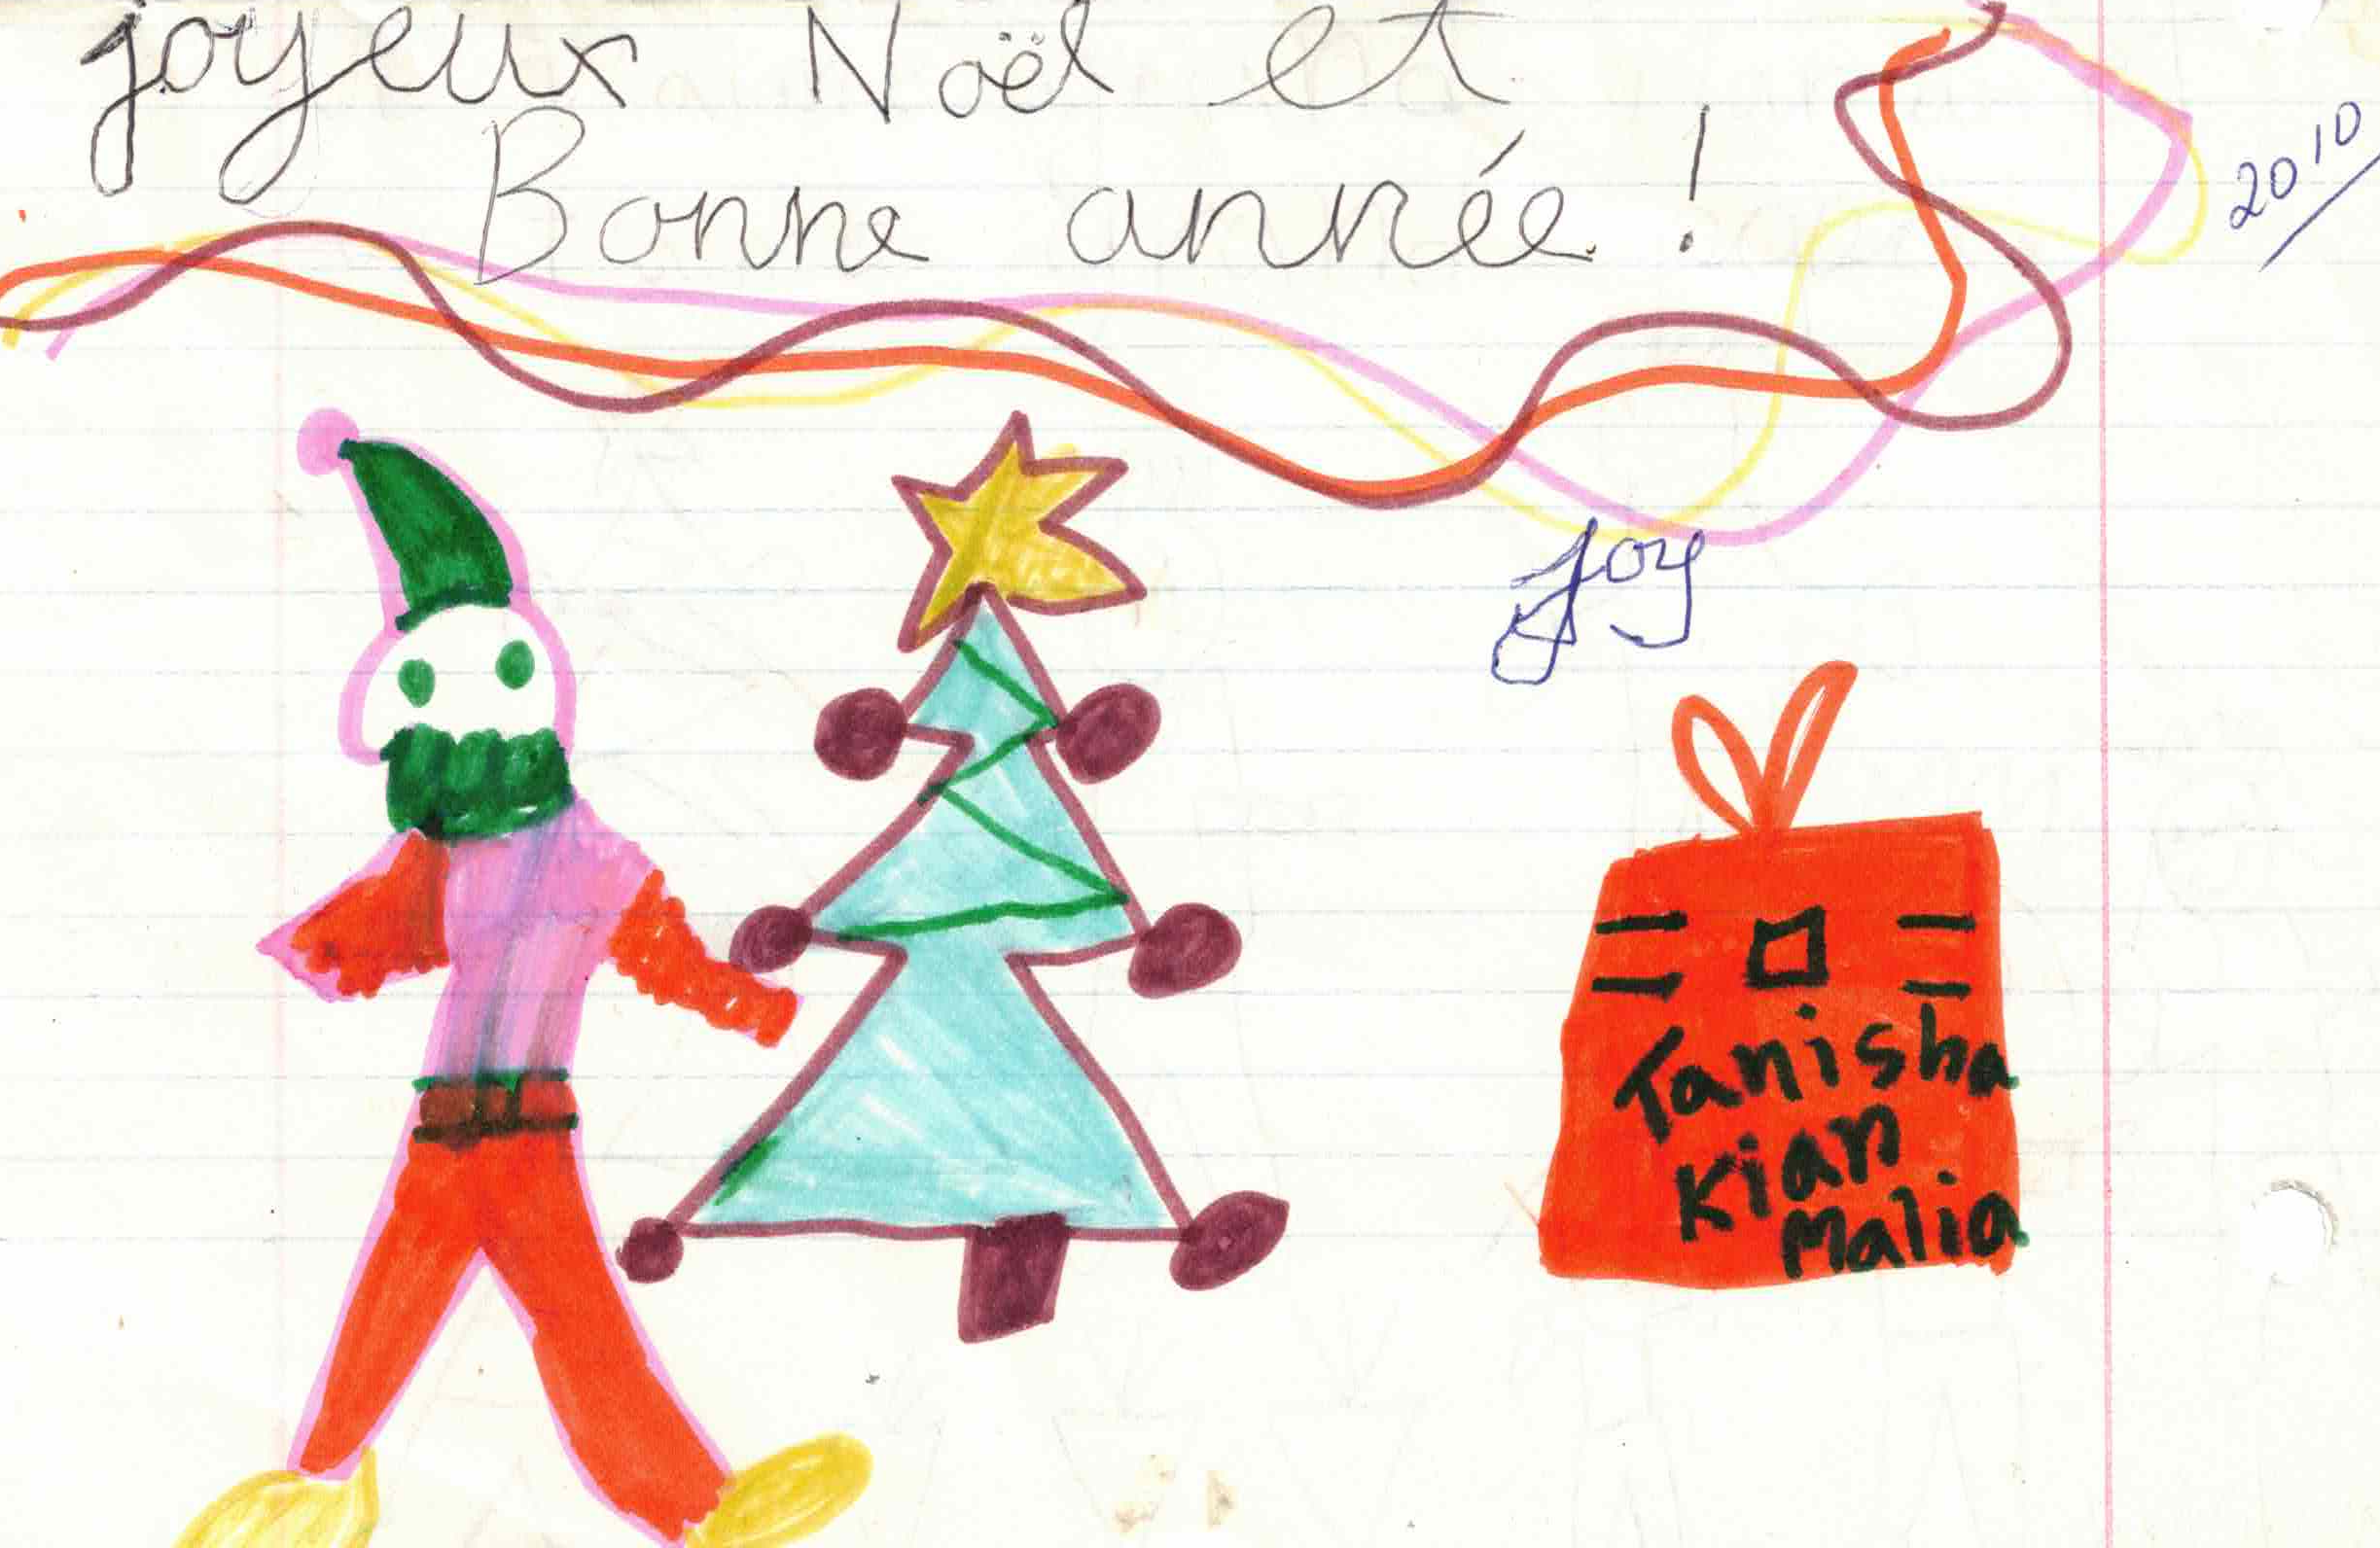 joyeux Noël et
Bonne année !
2010
Joy
Tanisha
Kian
Malia